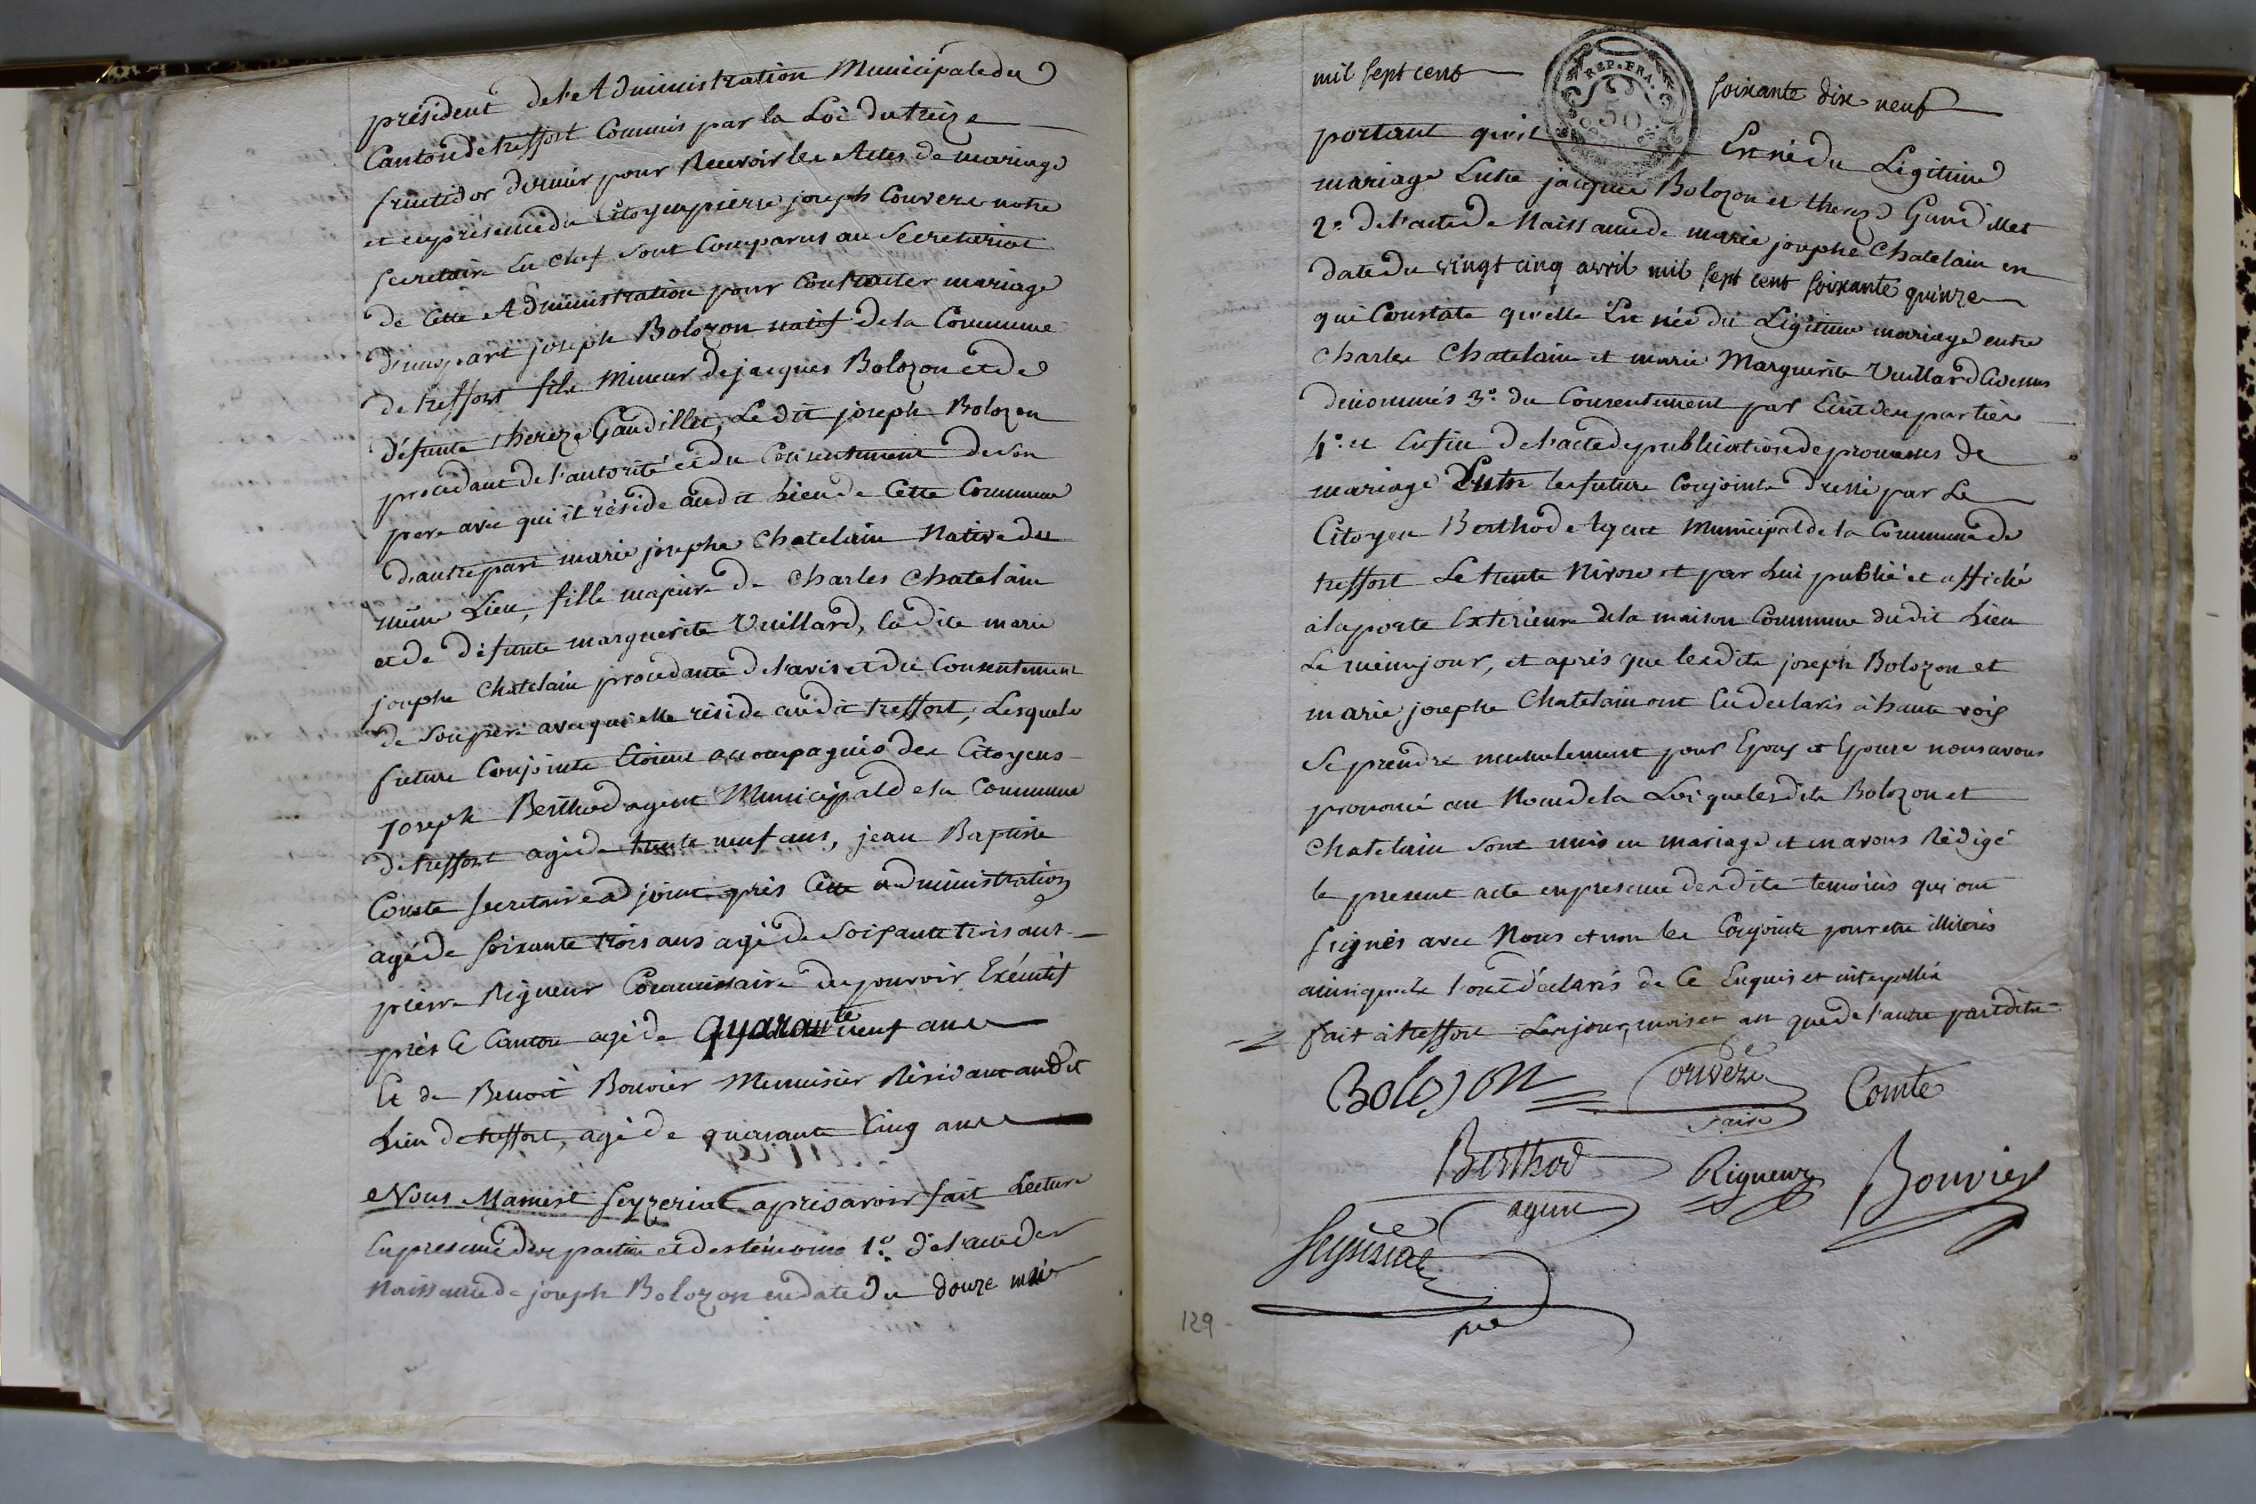 président de l'Administration Municipale du
Canton de treffort Commis par la Loi du treize
fructidor dernier pour Recevoir les Actes de mariage
et en présence du Citoyen pierre joseph Convere notre
secretaire en chef sont Comparus au Secretariat
de Cette Administration pour Contracter mariage
d'une part joseph Bolozon natif de la Commune
de treffort fils Mineur de jacques Bolozon et de
défunte thereze Gaudillet, Le dit joseph Bolozon
procedant de l'autorité et du Consentement de son
pere avec qui il réside audit Lieu de Cette Commune
d'autre part marie josephe Chatelain Native du
même Lieu, fille majeure de Charles Chatelain
et de défunte marguerite Vuillard, la dite marie
josephe Chatelain procedante de l'avis et du Consentement
de son pere avec qui elle réside audit treffort, Lesquels
futurs Conjoints Etoient accompagnés des Citoyens
joseph Berthod agent Municipal de la Commune
de treffort agé de trente neuf ans, jean Baptiste
Comte secretaire adjoint près Cette administration
agé de soixante trois ans agé de soixante trois ans
pierre Rigueur Commissaire du pouvoir Exécutif
près Ce Canton agé de quarante neuf ans
Et de Benoit Bouvier Menuisier Résidant audit
Lieu de treffort, agé de quarante Cinq ans
Nous Mamert Seyzeriat après avoir fait Lecture
En presence des parties et des témoins 1.° de l'acte de
Naissance de joseph Bolozon en date du douze mai
mil sept cent soixante dix neuf
REP. FRA.
50
portant qu'il Est né du Légitime
mariage Entre jacques Bolozon et thereze Gaudillet
2.° de l'acte de Naissance de marie josephe Chatelain en
date du vingt cinq avril mil sept cent soixante quinze
qui Constate qu'elle Est née du Légitime mariage entre
Charles Chatelain et marie Marguerite Vuillard Cidessus
dénommés 3.° du Consentement par Ecrit des parties
4.° et Enfin de l'acte de publication de promesses de
mariage Entre les futurs Conjoints dressé par Le
Citoyen Berthod Agent Municipal de la Commune de
treffort Le trente Nivose et par Lui publié et affiché
à la porte Exterieure de la maison Commune dudit Lieu
Le même jour, et après que lesdits joseph Bolozon et
marie josephe Chatelain ont Eu declarés à haute voix
Se prendre mutuelement pour Epoux et Epouse nous avons
prononcé au Nom de la Loi que lesdits Bolozon et
Chatelain sont unis en mariage et en avons Rédigé
le present acte en presence desdits temoins qui ont
signés avec Nous et non les Conjoints pour etre illiterés
ainsi qu'ils l'ont déclarés de Ce Enquis et interpellés
fait à treffort Les jour, mois et an que de l'autre part dits
Bolozon Convere Comte
Berthod Rigueur Bouvier
agent
Seyzeriat
129